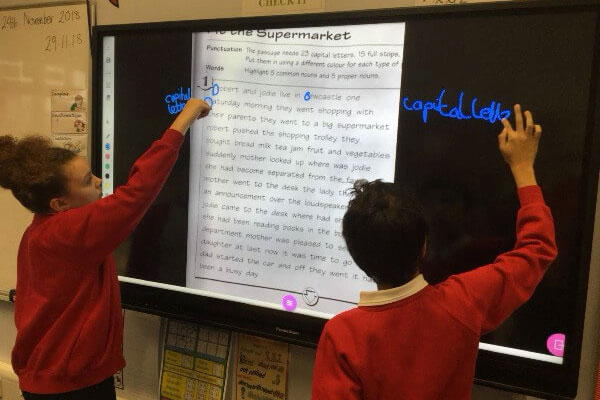 29th November 2018
29.11.18
CHECK IT
the Supermarket
Punctuation The passage needs 23 capital letters, 15 full stops.
Put them in using a different colour for each type of
Words Highlight 5 common nouns and 5 proper nouns.
1
obert and jodie live in newcastle one
capital
aturday morning they went shopping with
their parents they went to a big supermarket
robert pushed the shopping trolley they
bought bread milk tea jam fruit and vegetables
suddenly mother looked up where was jodie
she had become separated from the
mother went to the desk the lady
an announcement over the loudspeaker
jodie came to the desk where had
she had been reading books in the
department mother was pleased to
daughter at last now it was time to go
dad started the car and off they went it
been a busy day
capital lette